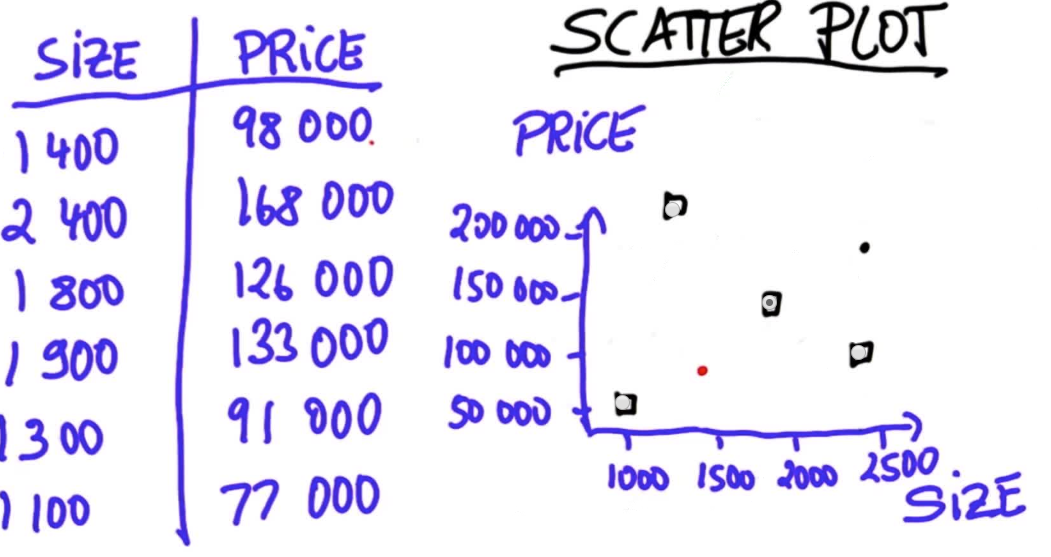 SIZE PRICE
1 400 98 000
2 400 168 000
1 800 126 000
1 900 133 000
1300 91 000
1 100 77 000
SCATTER PLOT
PRICE
200 000
150 000
100 000
50 000
1000 1500 2000 2500
SIZE